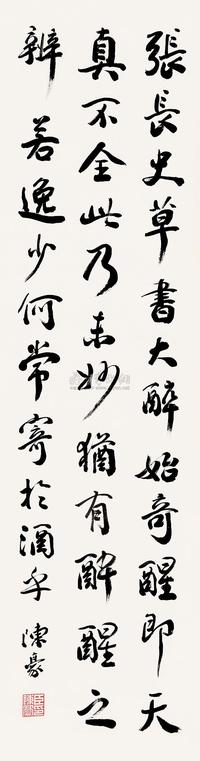 張長史草書大醉始奇醒即天
真不全此乃未妙猶有醉醒之
辦若逸少何常寄於酒乎 陳豪